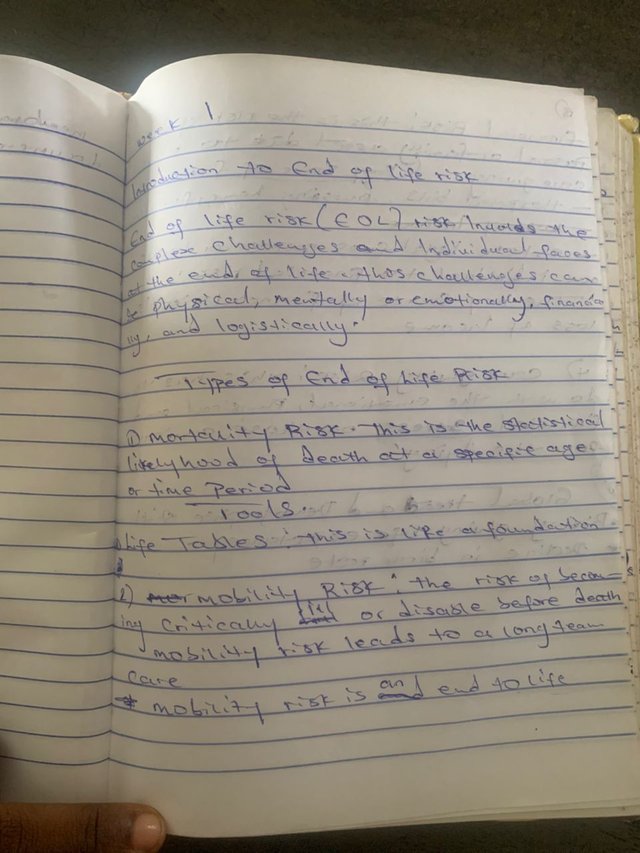 week 1
Introduction to End of life risk
End of life risk (EOL) risk Involds the
complex challenges and Individual faces
at the end of life. this challenges can
be physical, mentally or emotionally, financia
lly, and logistically.
Types of End of Life Risk
① mortality Risk. This is the statistical
likelyhood of death at a specific age
or time Period
Tools.
Life Tables: this is like a foundation
2) mobility Risk: the risk of becom-
ing critically ill or disable before death
mobility risk leads to a long team
care
* mobility risk is an end to life